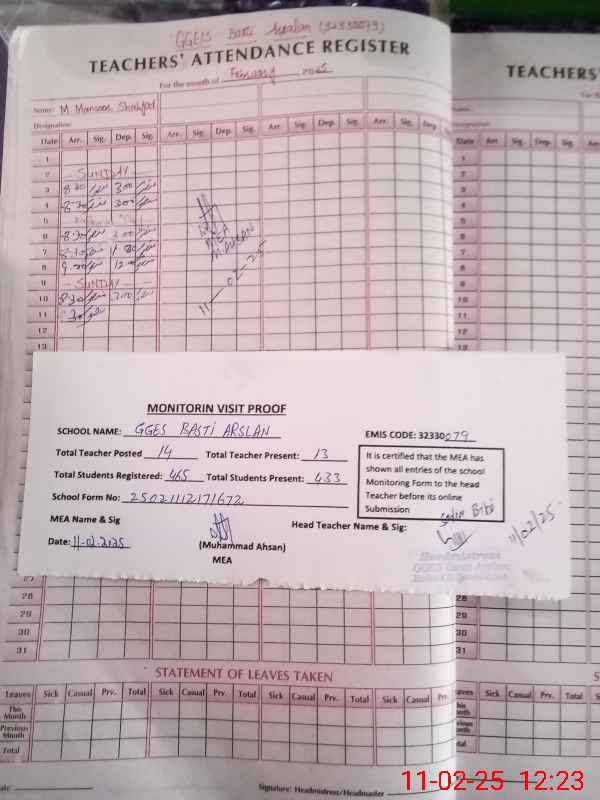 GGES Basti Arslan (32330079)
TEACHERS' ATTENDANCE REGISTER
For the month of February 2025
Name: M. Mansoor Shahfod
Designation
Date Arr. Sig. Dep. Sig. Arr. Sig. Dep. Sig. Arr. Sig. Dep. Sig. Arr. Sig. Dep.
1
2 SUNDAY
3 8:30 3:00
4 8:30 3:00
5
6 8:30 3:00
7 8:30 11:30
8 12:00
9 SUNDAY
10 8:30 3:00
11
12
13
MEA
11-02-25
MONITORIN VISIT PROOF
SCHOOL NAME: GGES BASTI ARSLAN
EMIS CODE: 32330079
Total Teacher Posted 14 Total Teacher Present: 13
Total Students Registered: 465 Total Students Present: 433
School Form No: 25021112171672
It is certified that the MEA has
shown all entries of the school
Monitoring Form to the head
Teacher before its online
Submission
MEA Name & Sig
Head Teacher Name & Sig:
Bibi
11/02/25
Date: 11-02-2025
(Muhammad Ahsan)
MEA
Headmistress
GGES Basti Arslan
27
28
29
30
31
STATEMENT OF LEAVES TAKEN
Leaves Sick Casual Prv. Total Sick Casual Prv. Total Sick Casual Prv. Total Sick Casual Prv. Total
This Month
Previous Month
Total
Signature: Headmistress/Headmaster
TEACHERS'
Date Arr. Sig. Dep. Sig. Arr. Sig.
1
2
3
4
5
6
7
8
9
10
11
12
13
28
29
30
31
Sick Casual Prv. Total Sick
11-02-25 12:23